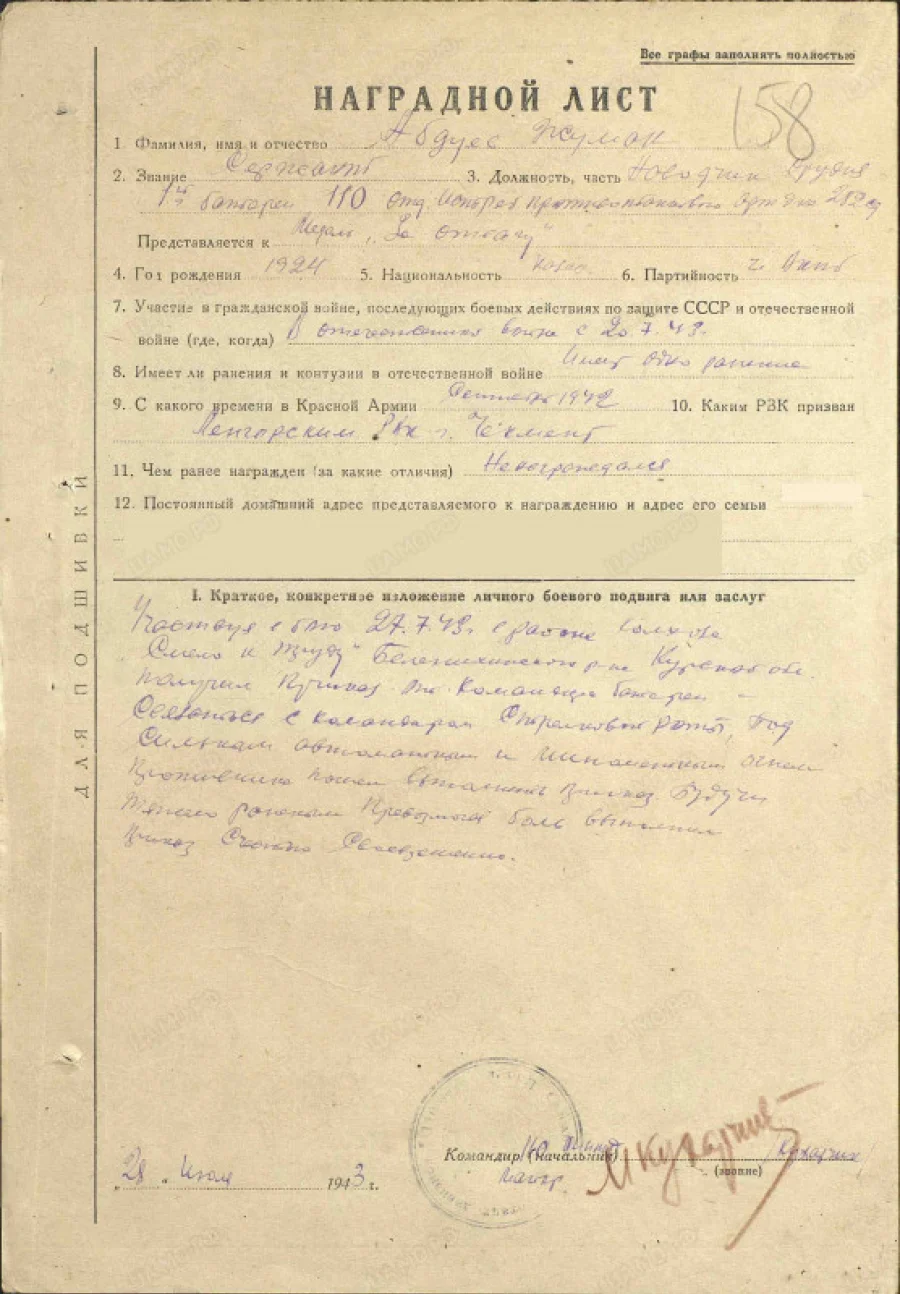 Все графы заполнять полностью
НАГРАДНОЙ ЛИСТ
158
1 Фамилия, имя и отчество Абдуев Жуман
2. Звание Сержант 3. Должность, часть Наводчик орудия
1й батареи 110 отд. Истреб противотанкового
Представляется к Медаль „За отвагу"
4. Год рождения 1924 5. Национальность казах 6. Партийность
7. Участие в гражданской войне, последующих боевых действиях по защите СССР и отечественной
войне (где, когда) В отечественной войне с 20.7.43.
8. Имеет ли ранения и контузии в отечественной войне Имеет одно ранение
9. С какого времени в Красной Армии Сентябрь 1942 10. Каким РВК призван
Ленгорским Рвк г. Чекмент
11. Чем ранее награжден (за какие отличия) Ненаграждался
12. Постоянный домашний адрес представляемого к награждению и адрес его семьи
I. Краткое, конкретное изложение личного боевого подвига или заслуг
Участвуя в бою 27.7.43г в районе Колхоза
„Смело к труду" Беленихинского р-на Курской обл.
Получил Приказ от Командира батареи –
Связаться с командиром Стрелковой роты, под
сильным автоматным и минометным огнем
Противника пошел выполнять приказ. Будучи
тяжело раненым Превозмогая боль выполнил
приказ Своевременно.
ДЛЯ ПОДШИВКИ
„28 „ Июля 1943 г.
Командир (начальник) 110
майор. Кухарчик
(звание)